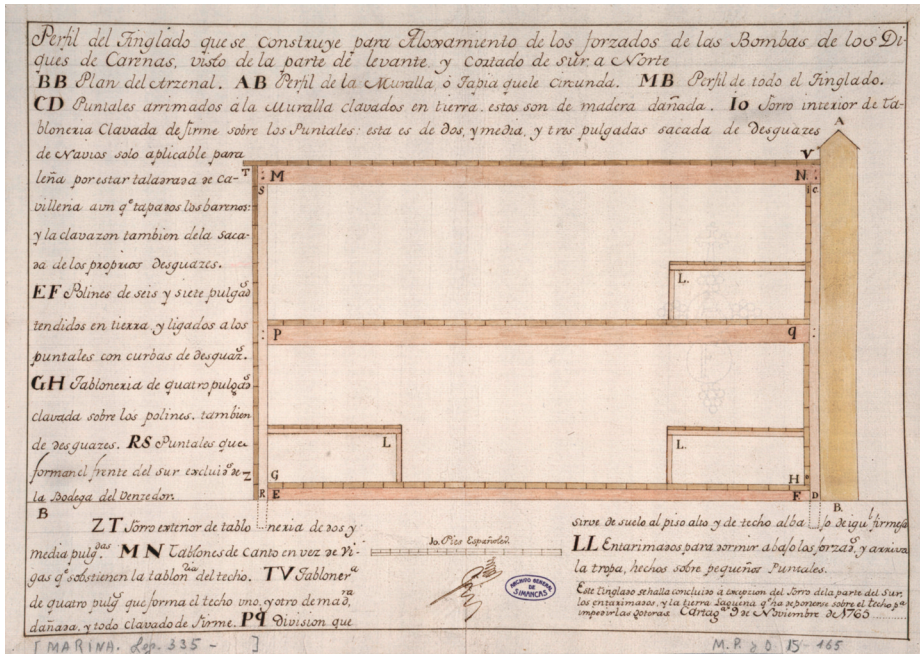 Perfil del Tinglado que se construye para Aloxamiento de los forzados de las Bombas de los Di-
ques de Carenas, visto de la parte de levante, y cortado de sur, a Norte
BB Plan del Arzenal. AB Perfil de la Muralla, ó Tapia que le circunda. MB Perfil de todo el Tinglado.
CD Puntales arrimados à la Muralla clavados en tierra, estos son de madera dañada. Io Forro interior de ta-
bloneria Clavada de firme sobre los Puntales: esta es de dos, y media, y tres pulgadas sacada de desguazes
de Navios solo aplicable para
leña por estar taladrada de ca-
villeria aun qe tapados los barenos:
y la clavazon tambien de la saca-
da de los propios desguazes.
EF Polines de seis y siete pulgads
tendidos en tierra, y ligados a los
puntales con curbas de desguazs.
GH Tabloneria de quatro pulgads
clavada sobre los polines, tambien
de desguazes. RS Puntales que
forman el frente del sur excluids de
la Bodega del Venzedor.
A
V
T
M
N
S
C
L.
P
q
L
L.
Z
G
H
R
E
F
D
B
B.
ZT Forro exterior de tablo neria de dos y
media pulgdas MN Tablones de Canto en vez de Vi-
gas qe sostienen la tablonria del techo. TV Tablonera
de quatro pulgs que forma el techo uno, y otro de madra
dañada, y todo clavado de firme. Pq Division que
10. Pies Españoles.
ARCHIVO GENERAL
DE
SIMANCAS
sirve de suelo al piso alto y de techo al ba jo de igul firmesa
LL Entarimados para dormir abajo los forzads, y arriva
la tropa, hechos sobre pequeños Puntales.
Este tinglado se halla concluido a excepcion del Forro de la parte del Sur,
los entarimados, y la tierra Laguena qe ha de ponerse sobre el techo pa
impedir las goteras. Cartaga 9 de Noviembre de 1763
[MARINA. Leg. 335 - ]
M.P. y D. 15-165